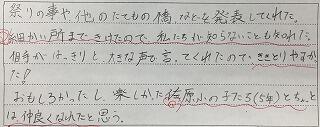 祭りの事や、他のたてもの、橋、などを発表してくれた。
細かい所まできけたので、私たちが知らないことも知れた。
相手が はっきりと、大きな声で言ってくれたので、ききとりやすかっ
た!
おもしろかったし、楽しかった。佐原小の子たち(5年)とちょっと
は仲良くなれたと思う。